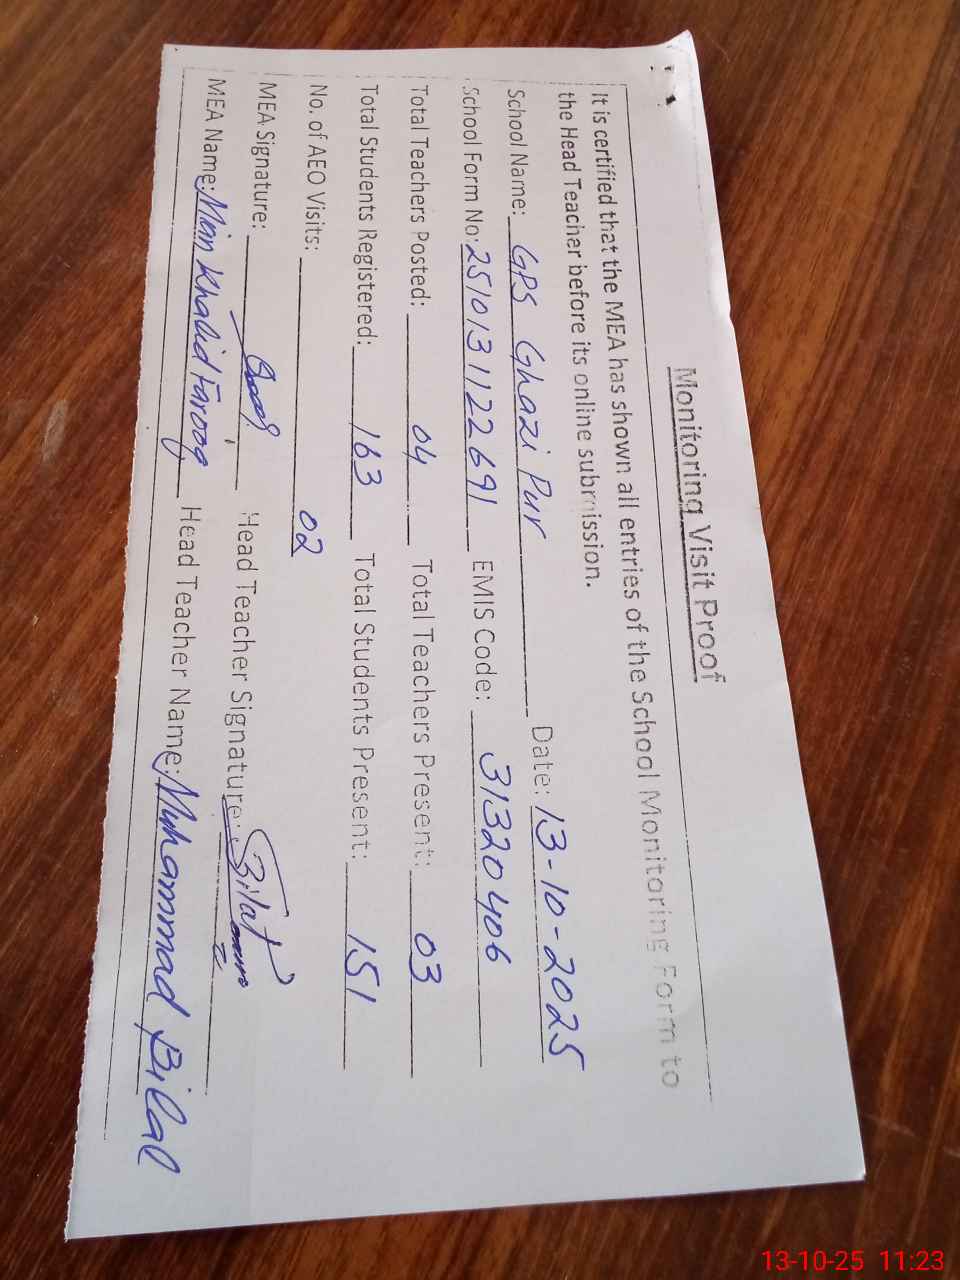 Monitoring Visit Proof
It is certified that the MEA has shown all entries of the School Monitoring Form to
the Head Teacher before its online submission.
School Name: GPS Ghazi Pur Date: 13-10-2025
School Form No: 2510131122691 EMIS Code: 31320406
Total Teachers Posted: 04 Total Teachers Present: 03
Total Students Registered: 163 Total Students Present: 151
No. of AEO Visits: 02
MEA Signature: Head Teacher Signature: Bilal
MEA Name: Mian Khalid Farooq Head Teacher Name: Muhammad Bilal
13-10-25 11:23